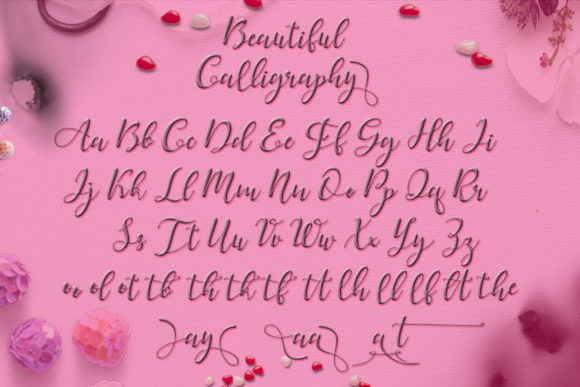 Beautiful
Calligraphy
Aa Bb Cc Dd Ee Ff Gg Hh Ii
Jj Kh Ll Mm Nn Oo Pp Qq Rr
Ss Tt Uu Vv Ww Xx Yy Zz
oo ol ot tb th tk tf tt lh ll lf lt the